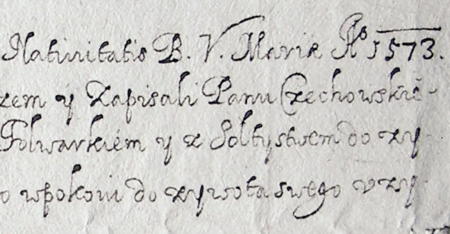 Natiuitatis B. V. Mariæ Aº 1573.
zem y Zapisali Panu Czechowskié-
Folwarkiém y z Soltystwem do zy-
o wpokoiu do zywota swego vzy-